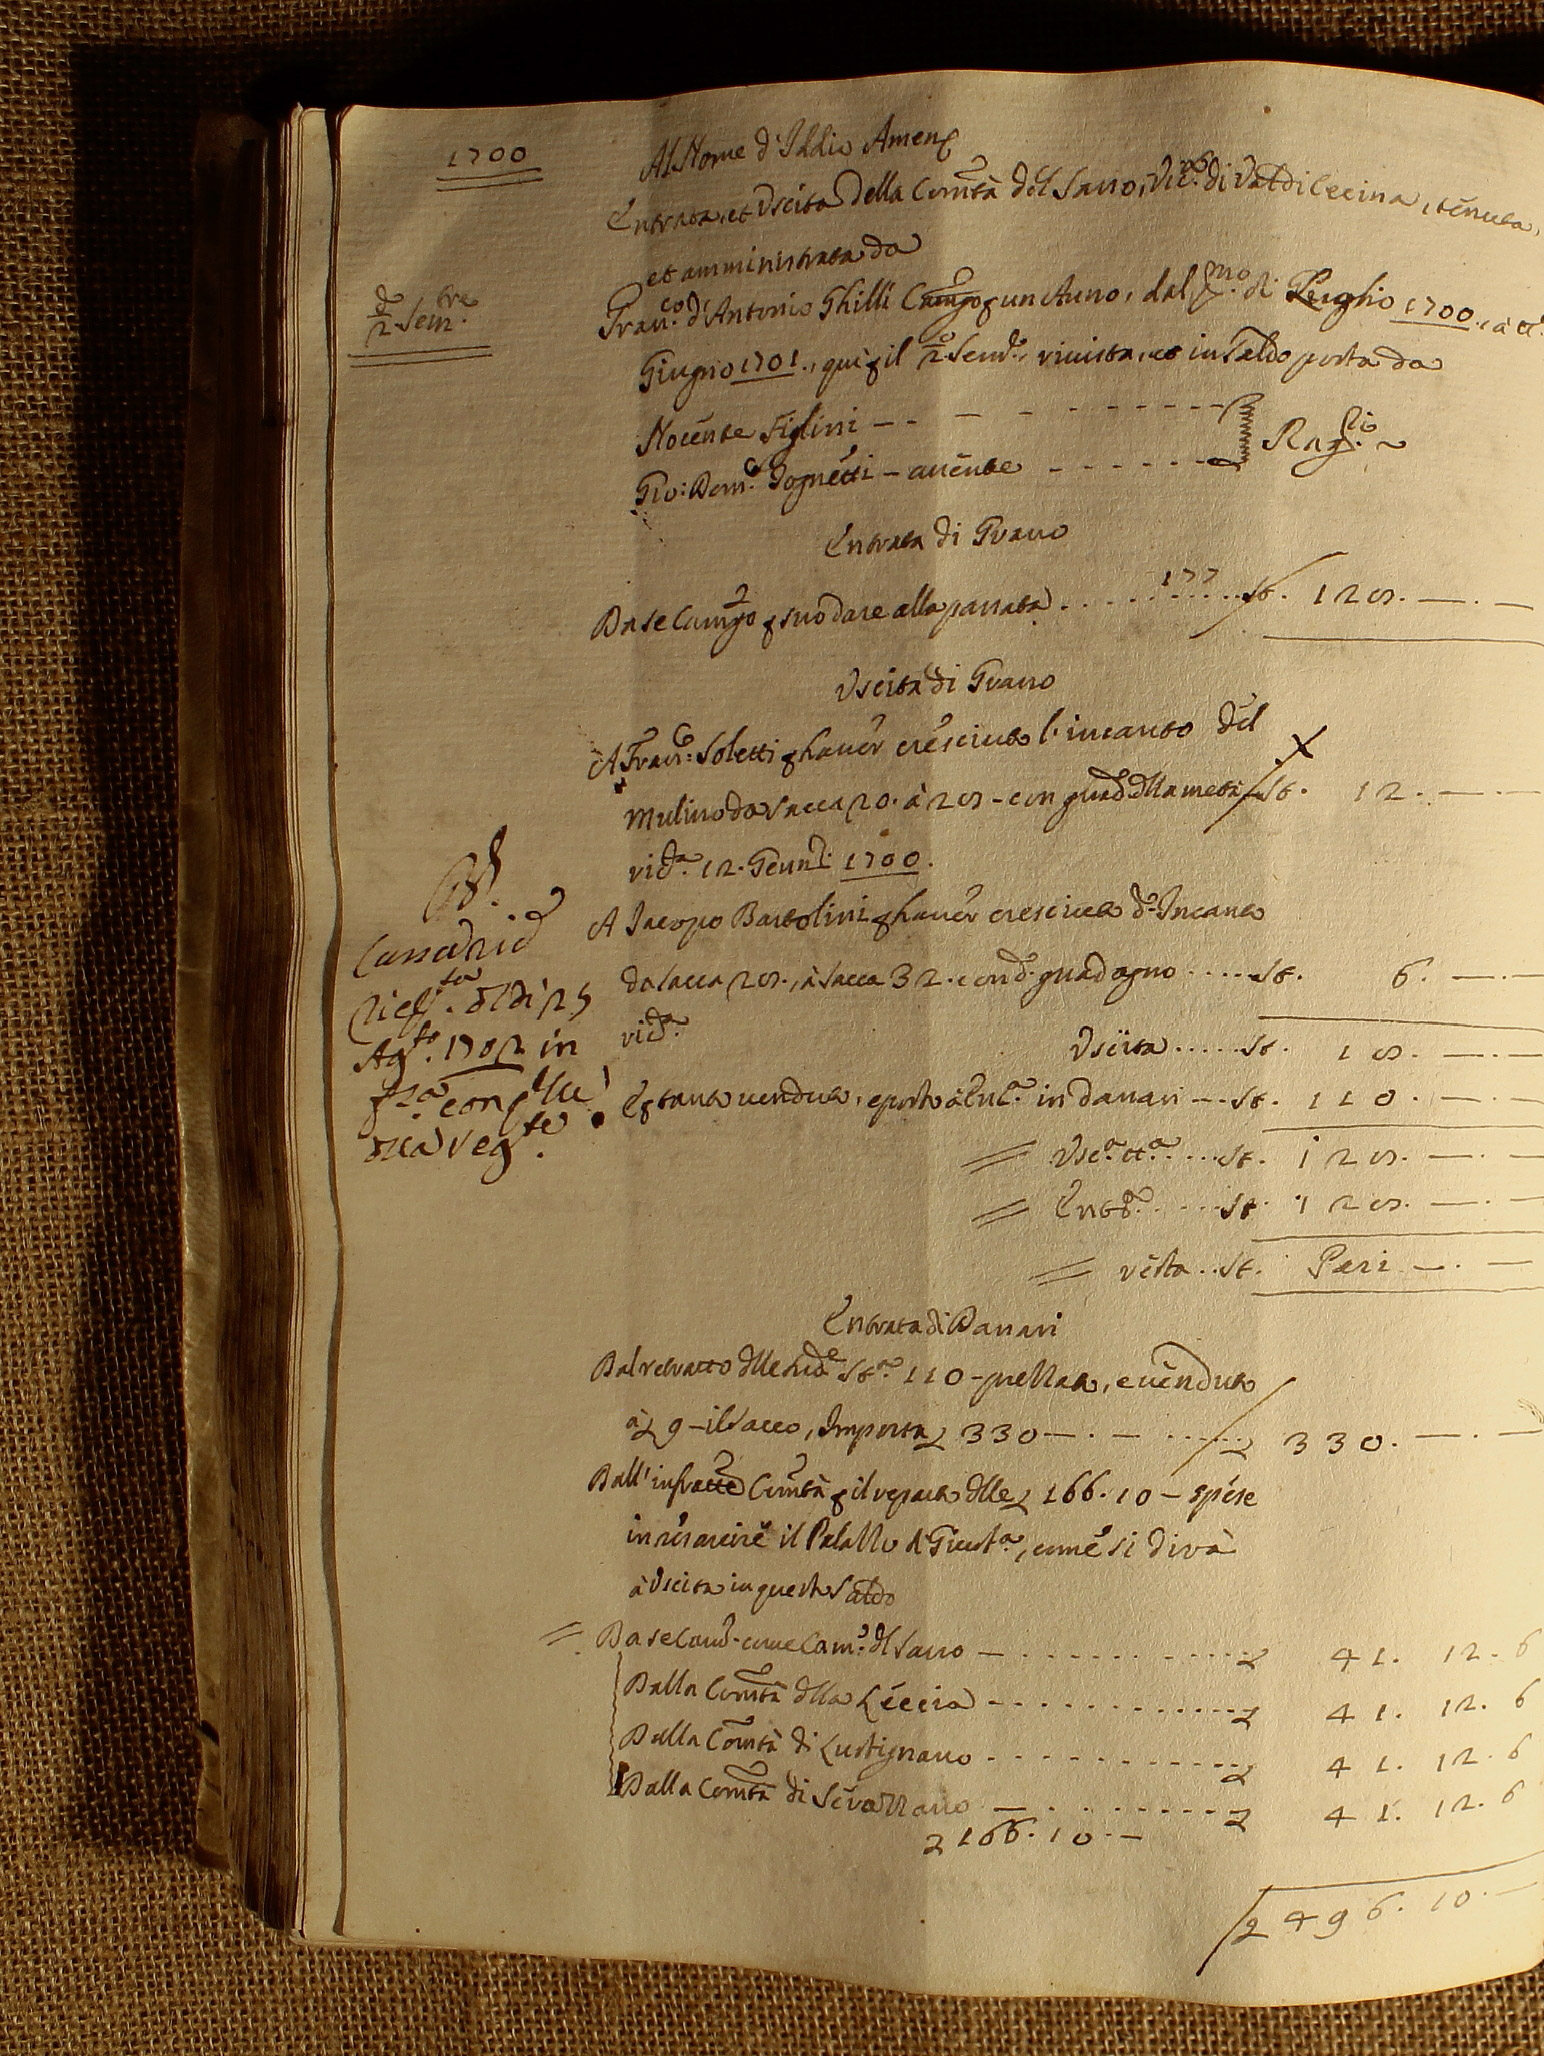 1700
Al Nome d'Iddio Amen
Entrata, et Uscita della Com.tà del Sasso, Vic.to di Valdicecina, tenuta,
et amministrata da
2.do Sem.tre
Fran.co d'Antonio Ghilli Cam.go p un Anno, dal p.mo di Luglio 1700., à tt.o
Giugno 1701., qui p il 2.o Sem.e, rivista, et in Saldo posta da
Nocente Figlini - - - - - - - -
Gio: Dom.co Tognetti - attente - - - - - Rag.ri
Entrata di Grano
Da se Cam.go p suo dare alla passata . . . . 177 . . . . St. 128. —. —
Uscita di Grano
A Fran.co Soletti p haver cresciuto l'incanto del
Mulino da sacca 20. à 28 - con guad.o dlla metà St. 12. —. —
vid.a 12. Genn.o 1700.
A Iacopo Bartolini p haver cresciuto d.o Incanto
da sacca 28., à sacca 32. con d.o guadagno . . . . . St. 6. —. —
vid.a
Uscita . . . . . St. 18. —. —
E p tanto venduto, e posto à Ent.a in danari --- St. 110. —. —
Usc.a tt.a . . . . St. 128. —. —
Ent.a . . . . . St. 128. —. —
resta . . St. Pari —. —
Cassa
Ag.to 1702 in
Entrata di Danari
Dal retratto dlle sud.e St.a 110 - , e venduto
à £ 9 - il sacco, Importa £ 330 —. — . . . . . £ 330. —. —
Dall' infratte Com.tà p il reparto dlle £ 166. 10 - spese
in resarcire il Palazzo di Giust.a, come si dirà
à Uscita in questo Saldo
Da se Cam.o come Cam.o dl Sasso — . . . . . . . . £ 41. 12. 6
Dalla Com.tà dlla Leccia - . . . . . . . . . . £ 41. 12. 6
Dalla Com.tà di Lustignano - . . . . . . . . . £ 41. 12. 6
Dalla Com.tà di Serazzano — . . . . . . . . £ 41. 12. 6
£ 166. 10. —
£ 496. 10. —